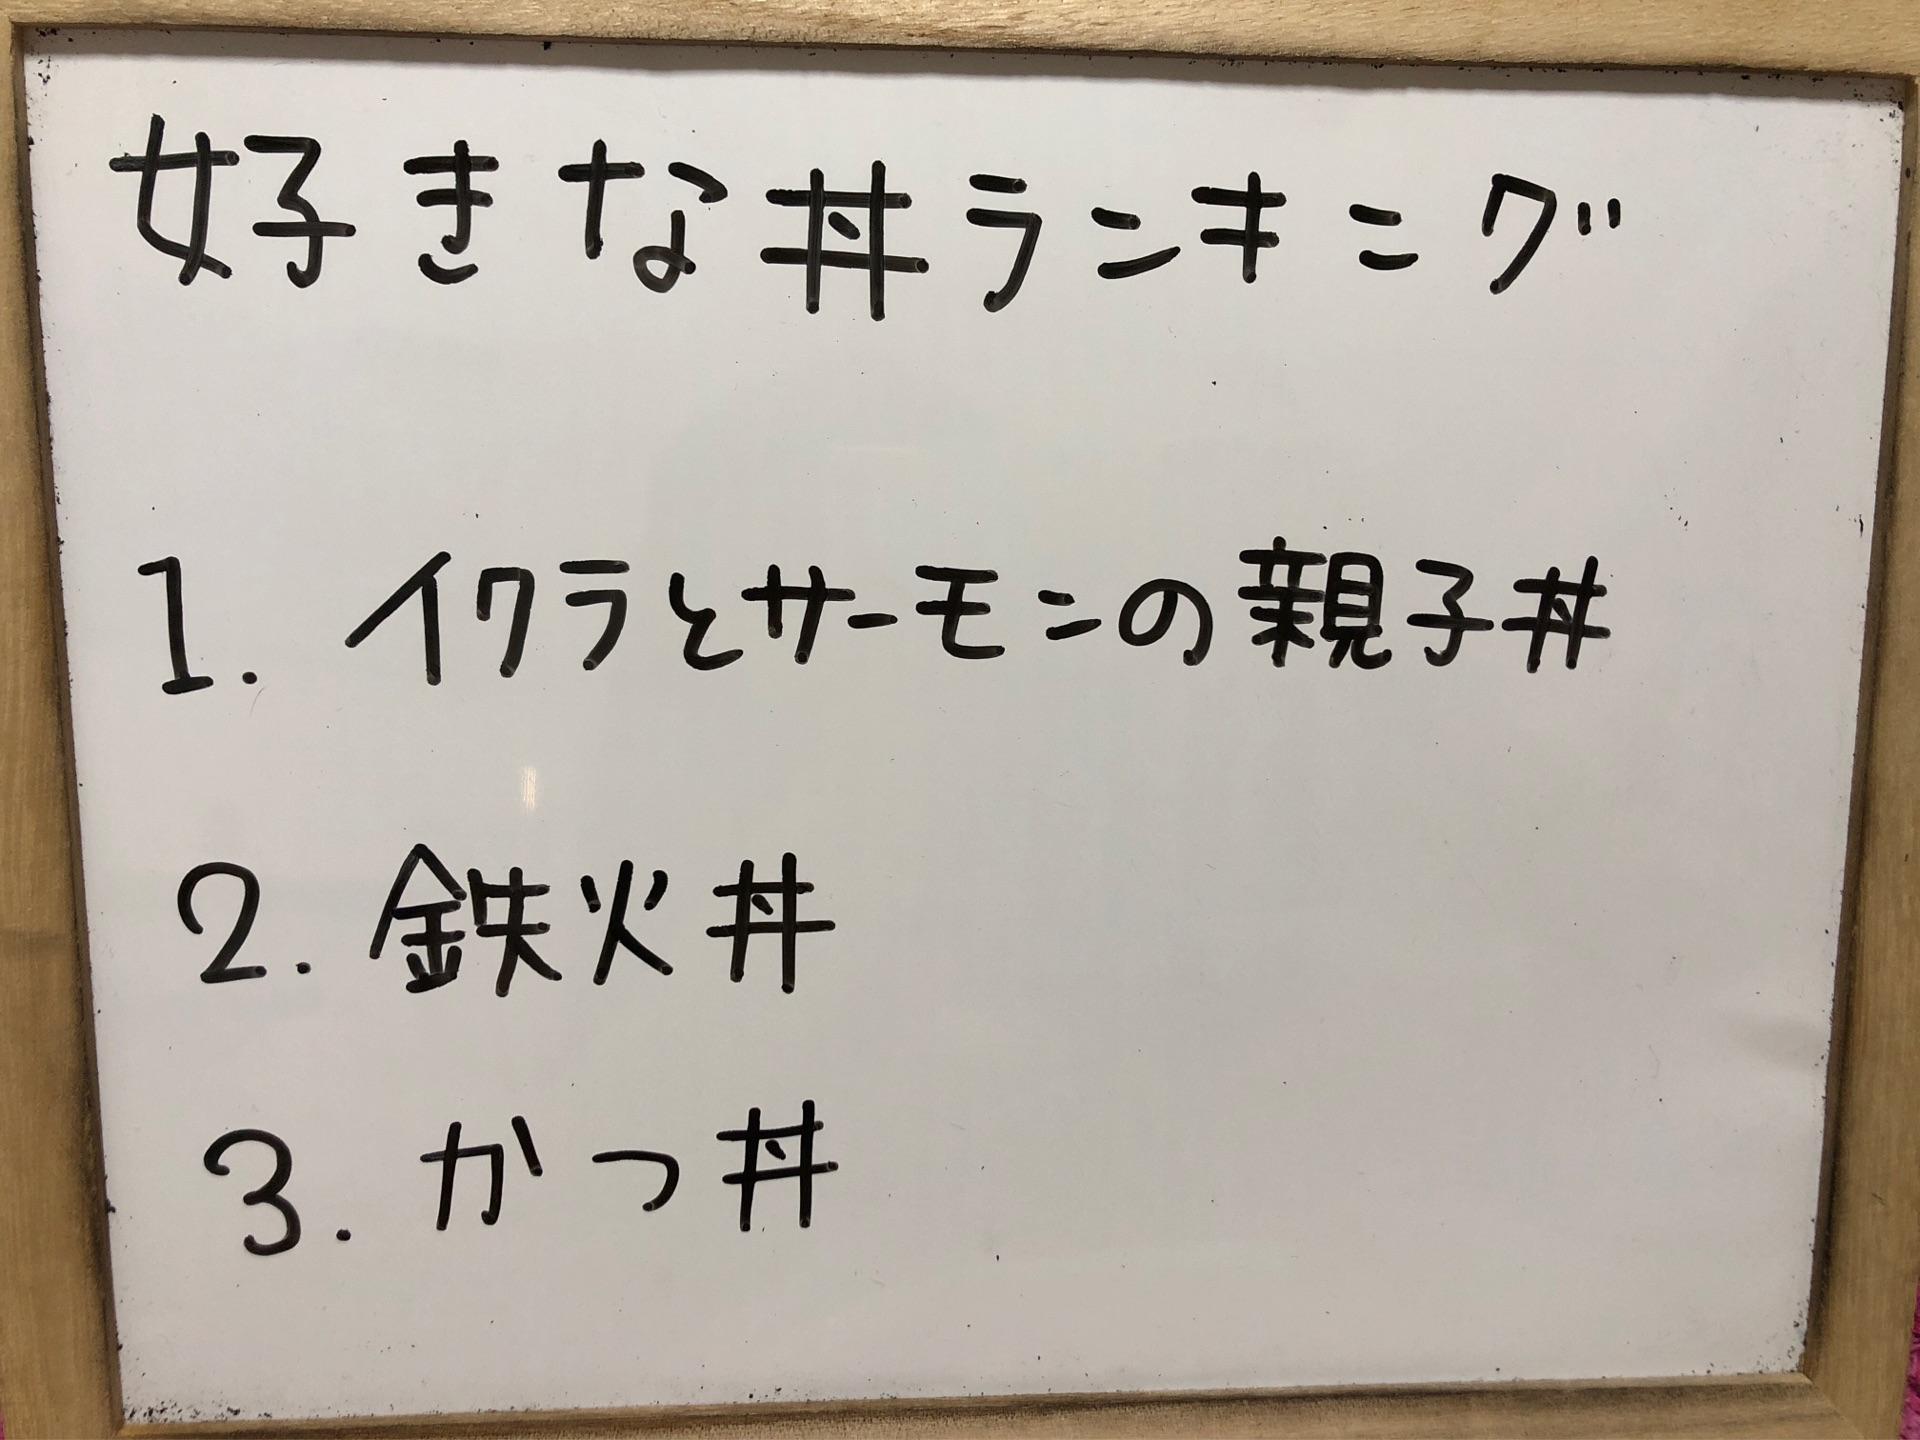 好きな丼ランキング
1. イクラとサーモンの親子丼
2. 鉄火丼
3. かつ丼